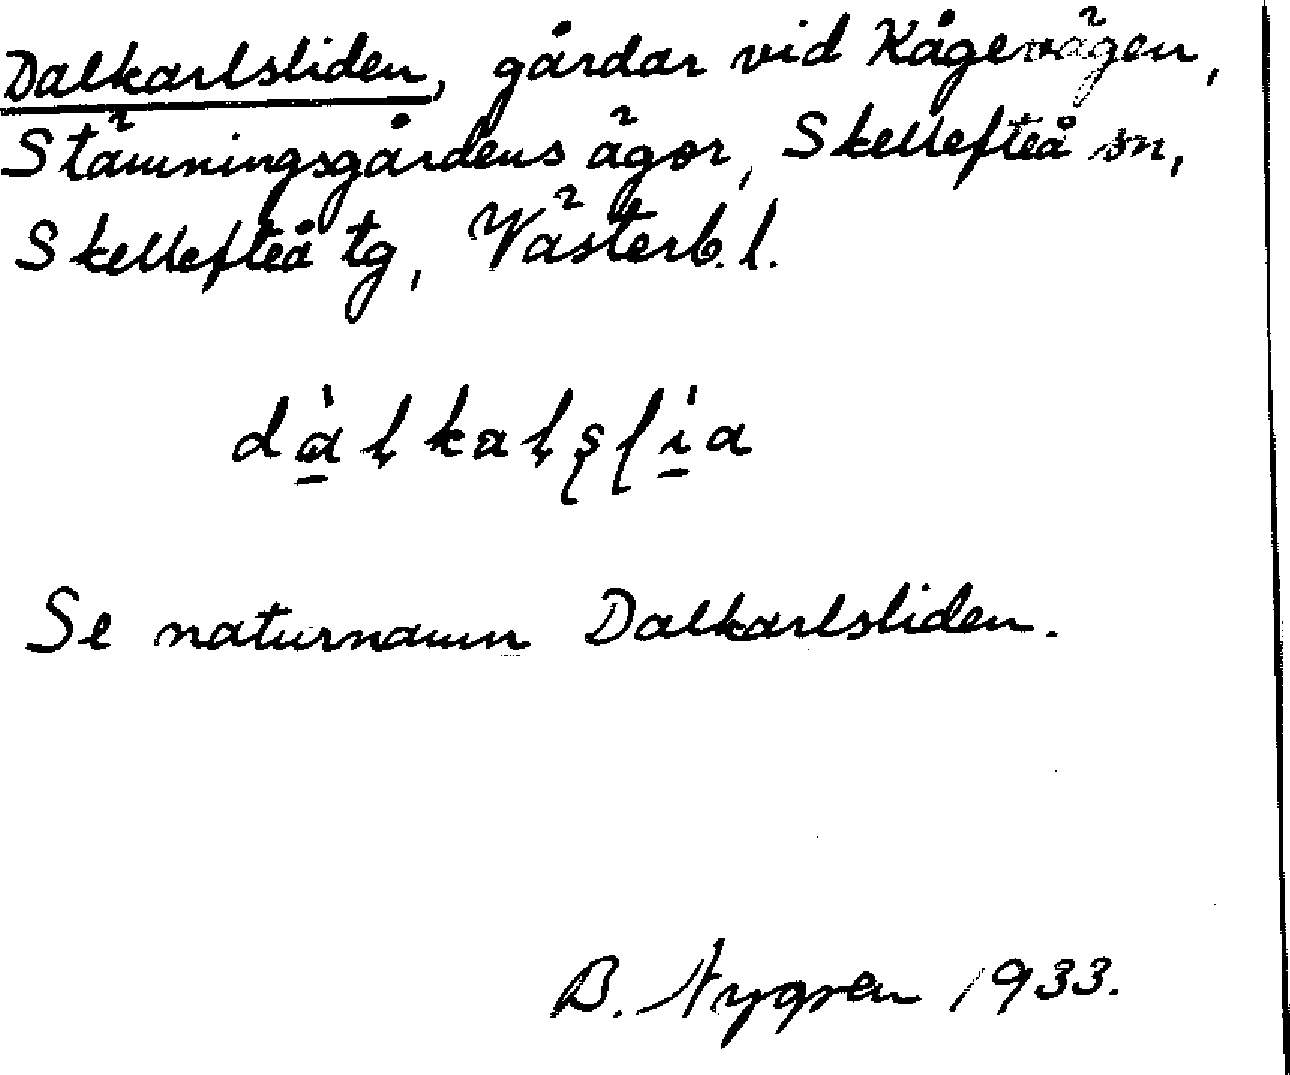 Dalkarlsliden, gårdar vid Kågevägen,
Stämningsgårdens ägor, Skellefteå sn,
Skellefteå tg, Västerb. l.
dàḷkaḷslìa
Se naturnamn Dalkarlsliden.
B. Nygren 1933.